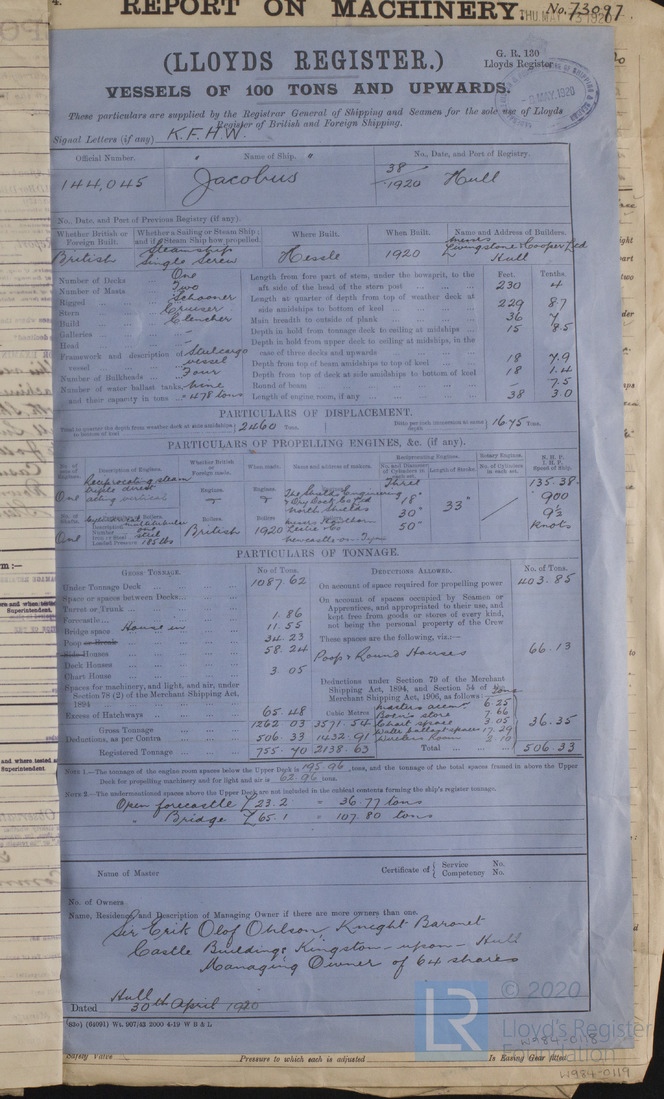 4. REPORT ON MACHINERY. No. 73097
THU. MAY 13 1920
(LLOYDS REGISTER.)
G. R. 130
Lloyds Register
VESSELS OF 100 TONS AND UPWARDS.
MAY. 1920
These particulars are supplied by the Registrar General of Shipping and Seamen for the sole use of Lloyds
Register of British and Foreign Shipping.
Signal Letters (if any) K.F.H.W.
Official Number. Name of Ship. No., Date, and Port of Registry.
144,045 Jacobus 38/1920 Hull
No., Date, and Port of Previous Registry (if any).
Whether British or Foreign Built. Whether a Sailing or Steam Ship; and if a Steam Ship how propelled Where Built. When Built. Name and Address of Builders.
British Steamship Single Screw Hessle 1920 Messrs Livingstone & Cooper Ltd Hull
Feet. Tenths.
Number of Decks One
Number of Masts Two
Rigged Schooner
Stern Cruiser
Build Clencher
Galleries –
Head –
Framework and description of vessel Steel cargo vessel
Number of Bulkheads Four
Number of water ballast tanks, Nine
and their capacity in tons 478 tons
Length from fore part of stem, under the bowsprit, to the
aft side of the head of the stern post 230 4
Length at quarter of depth from top of weather deck at
side amidships to bottom of keel 229 8.7
Main breadth to outside of plank 36 7
Depth in hold from tonnage deck to ceiling at midships 15 8.5
Depth in hold from upper deck to ceiling at midships, in the
case of three decks and upwards
Depth from top of beam amidships to top of keel 18 7.9
Depth from top of deck at side amidships to bottom of keel 18 1.4
Round of beam – 7.5
Length of engine room, if any 38 3.0
PARTICULARS OF DISPLACEMENT.
Total to quarter the depth from weather deck at side amidships to bottom of keel 2460 Tons. Ditto per inch immersion at same depth 16.75 Tons.
PARTICULARS OF PROPELLING ENGINES, &c. (if any).
No. of sets of Engines. Description of Engines. Whether British or Foreign made. When made. Name and address of makers. Reciprocating Engines. Rotary Engines. N. H. P. I. H. P. Speed of Ship.
No. and Diameter of Cylinders in each set. Length of Stroke. No. of Cylinders in each set.
One Reciprocating steam triple direct acting vertical Engines. Engines. Engines.
The Smiths Engineering & Dry Dock Co Ltd North Shields
Three 18" 30" 50" 33" 135.38 900 9½ knots
No. of Shafts. One
Description
Number one
Iron or Steel steel
Loaded Pressure 185 lbs
Boilers. British Boilers 1920 Boilers. Messrs Hawthorn Leslie & Co Newcastle on Tyne
PARTICULARS OF TONNAGE.
GROSS TONNAGE. No. of Tons. DEDUCTIONS ALLOWED. No. of Tons.
Under Tonnage Deck 1087 62
Space or spaces between Decks
Turret or Trunk
Forecastle 1.86
Bridge space House in 11.55
Poop or Break 34.23
Side Houses 58.24
Deck Houses
Chart House 3 05
Spaces for machinery, and light, and air, under
Section 78 (2) of the Merchant Shipping Act,
1894
Excess of Hatchways 65 48
Cubic Metres
Gross Tonnage 1262 03 3571.54
Deductions, as per Contra 506 33 1432.91
Registered Tonnage 755 70 2138 63
On account of space required for propelling power 403.85
On account of spaces occupied by Seamen or
Apprentices, and appropriated to their use, and
kept free from goods or stores of every kind,
not being the personal property of the Crew
These spaces are the following, viz.:—
Poop & Round Houses 66.13
Deductions under Section 79 of the Merchant
Shipping Act, 1894, and Section 54 of the
Merchant Shipping Act, 1906, as follows: Tons
Masters accom 6.25
Boatn's store 7.66
Chart space 3.05 36.35
Water ballast spaces 17.29
Total 506 33
NOTE 1.—The tonnage of the engine room spaces below the Upper Deck is 195.96 tons, and the tonnage of the total spaces framed in above the Upper
Deck for propelling machinery and for light and air is 62.96 tons.
NOTE 2.—The undermentioned spaces above the Upper Deck are not included in the cubical contents forming the ship's register tonnage.
Open forecastle L 23.2 = 36.77 tons
" Bridge L 65.1 = 107.80 tons
Name of Master Certificate of { Service No. Competency No.
No. of Owners
Name, Residence, and Description of Managing Owner if there are more owners than one.
Sir Erik Olof Ohlson, Knight Baronet
Castle Buildings Kingston-upon-Hull
Managing Owner of 64 shares
Hull
Dated 30th April 1920
(93o) (61091) Wt. 907/43 2000 4-19 W B & L
© 2020
LR Lloyd's Register
Foundation
W984-0118
Safety Valve Pressure to which each is adjusted Is Easing Gear fitted
W984-0119